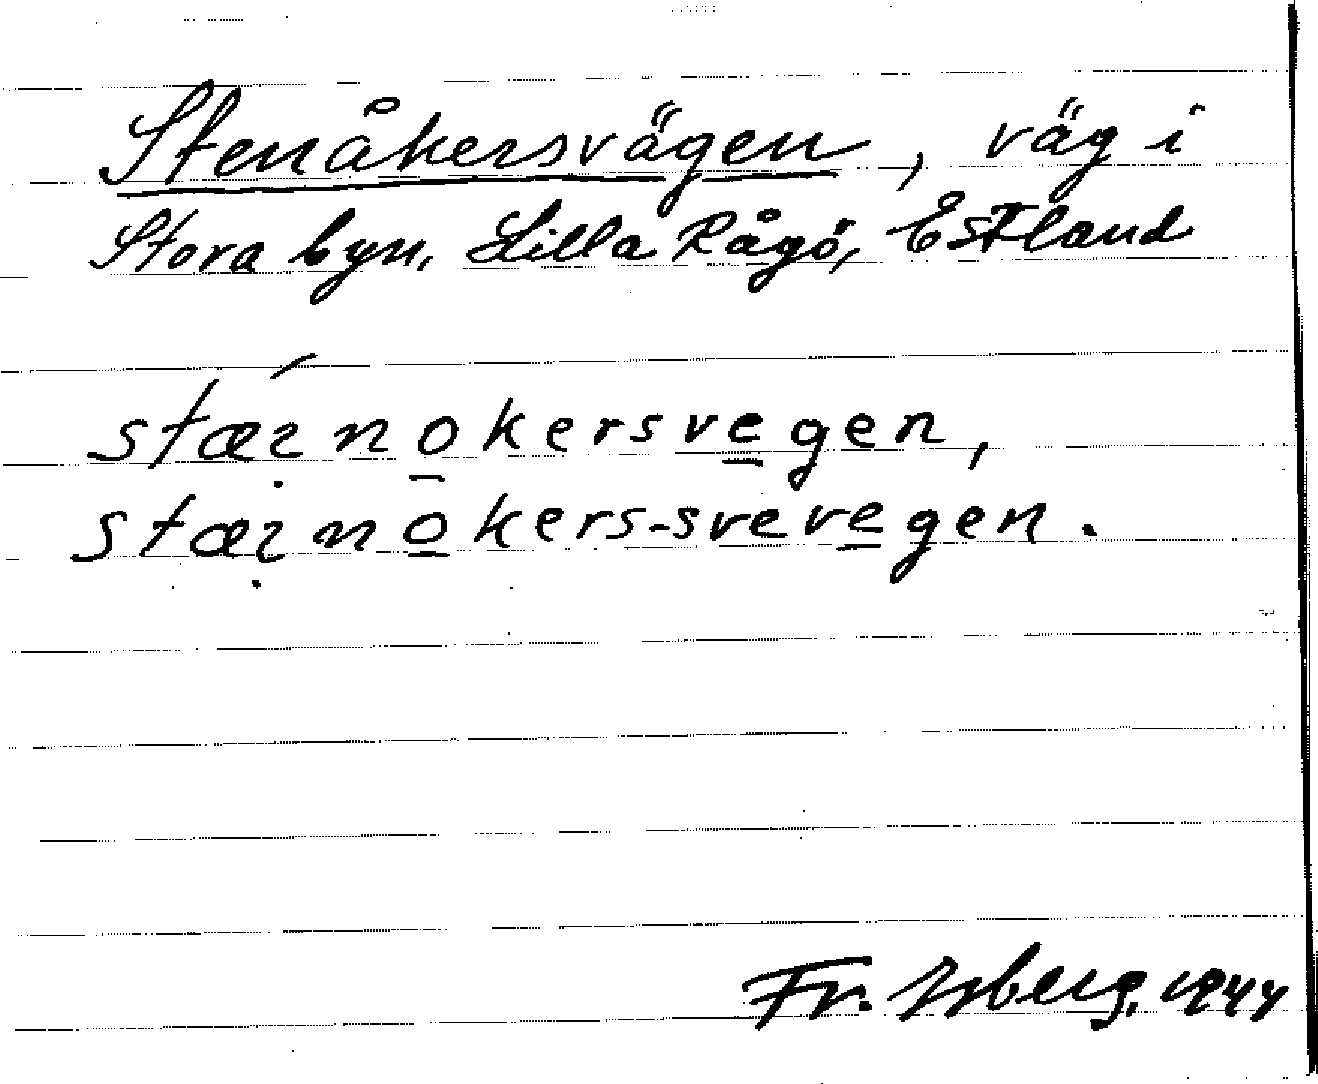 Stenåkersvägen, väg i
Stora byn, Lilla Rågö, Estland
stæị́no̲kersve̲gen,
stæịno̲kers-sveve̲gen.
Fr. Isberg, 1944